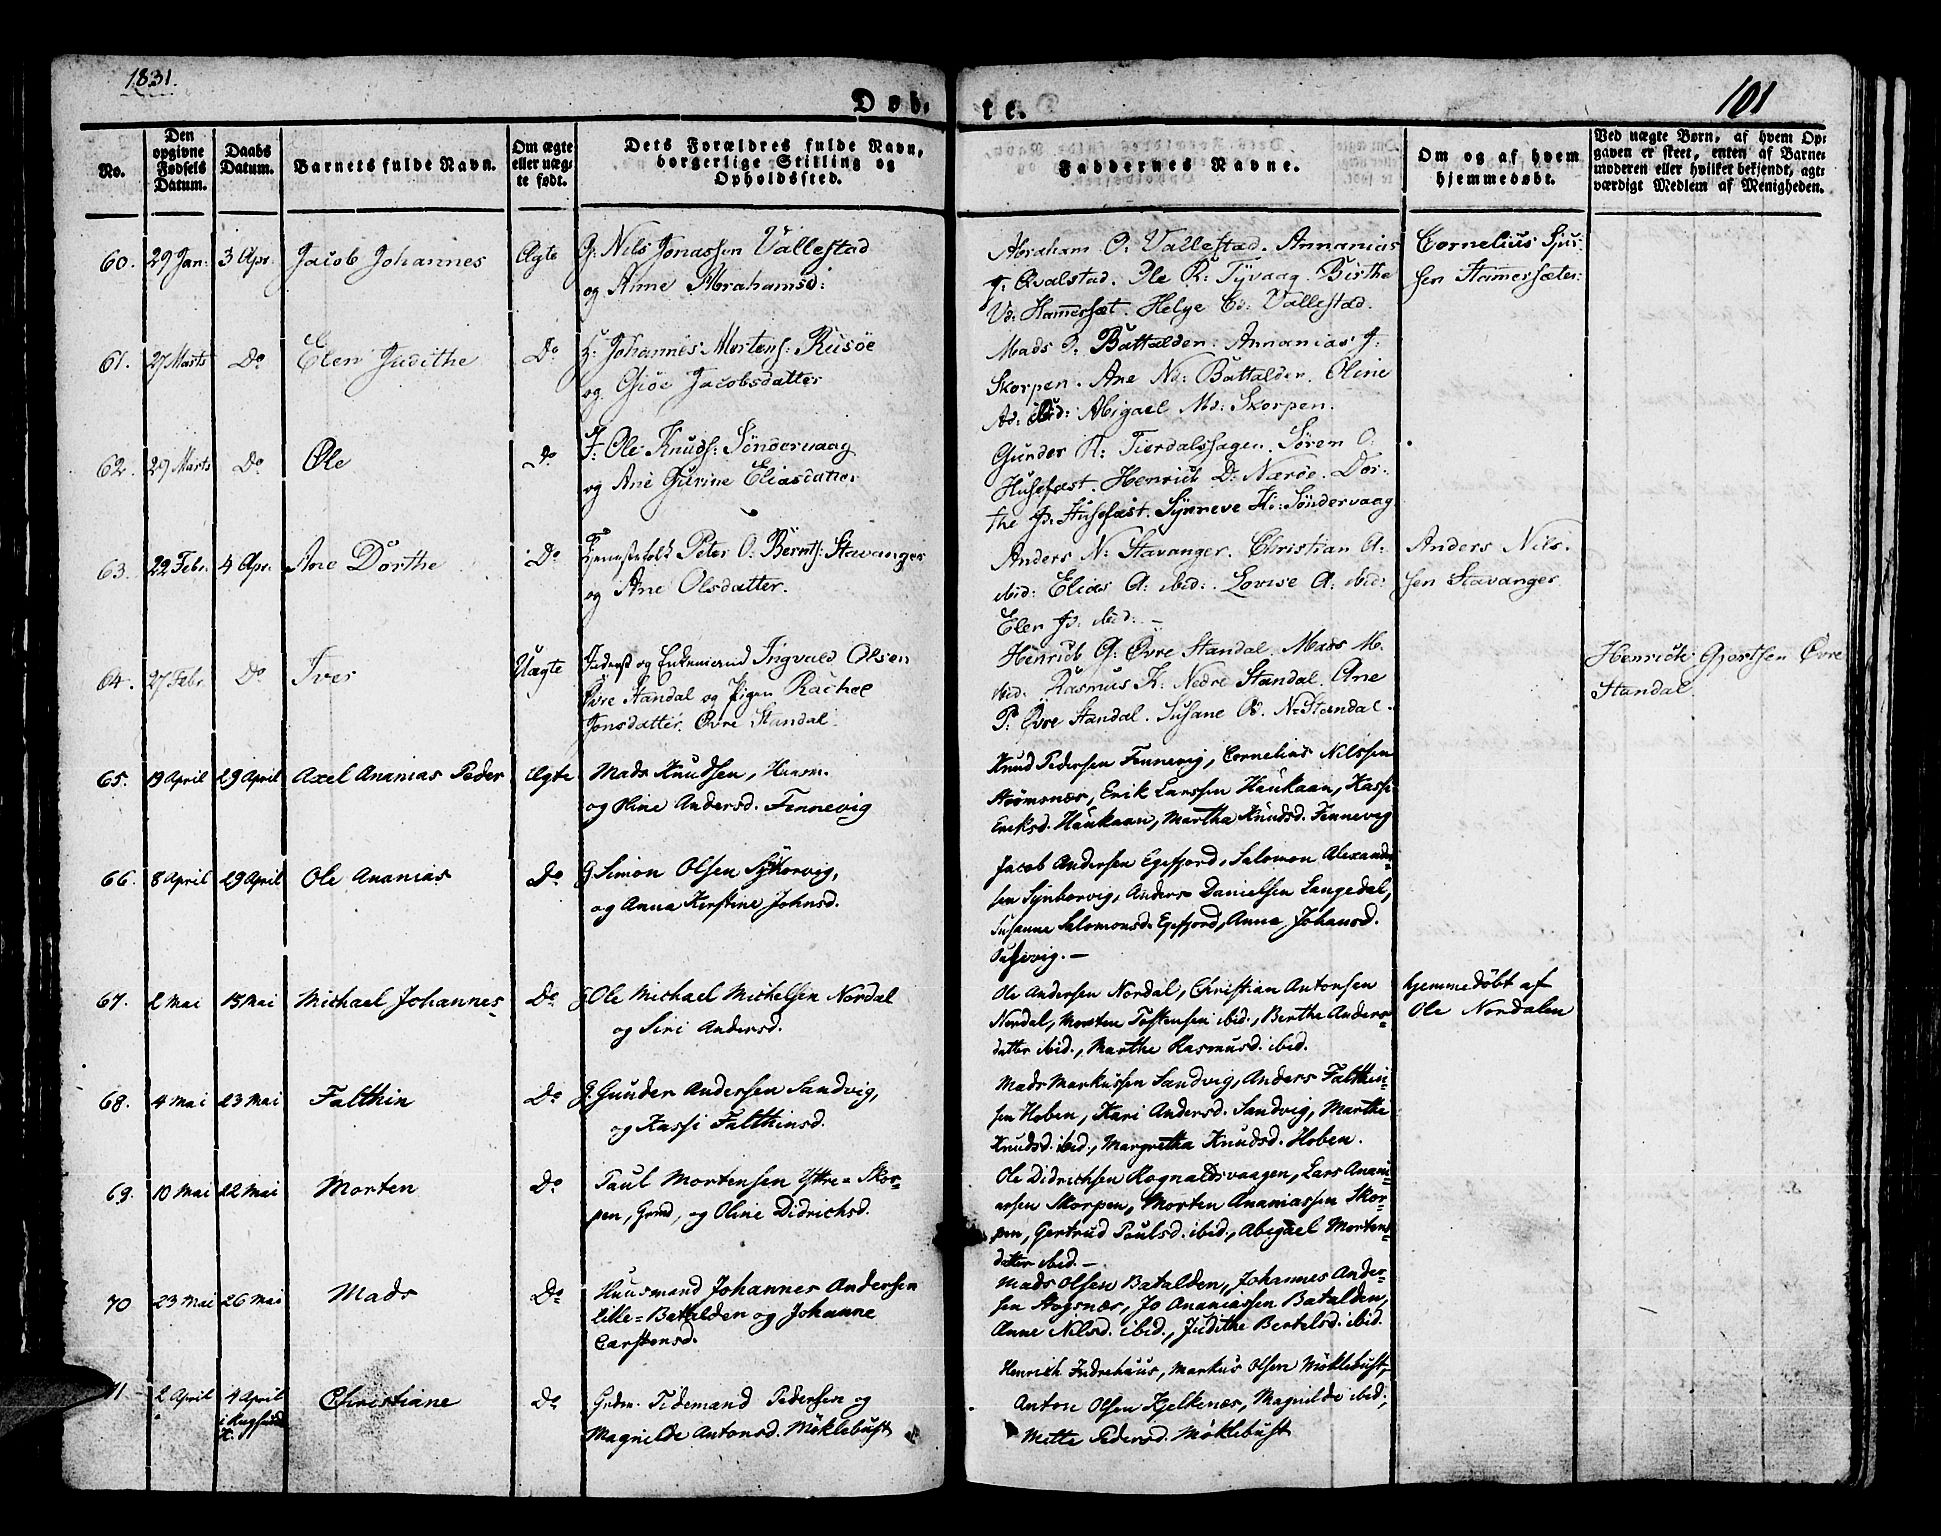 1831.
101
Døb,
te.
No.
Den opgivne Fødsels Datum.
Daabs Datum.
Barnets fulde Navn.
Om ægte eller uægte født.
Dets Forældres fulde Navn, borgerlige Stilling og Opholdssted.
Faddernes Navne.
Om og af hvem hjemmedøbt.
Ved uægte Børn, af hvem Op=
gaven er skeet, enten af Barne=
moderen eller hvilket bekjendt, agt=
værdigt Medlem af Menigheden.
60. 29 Jan: 3 Apr. Jacob Johannes Ægte G: Nils Jonassen Vallestad
og Anne Abrahamsd:
Abraham O: Vallestad. Annanias
J: Qvalstad. Ole R: Tyvaag. Birthe
Vd: Hammerset. Helge Cd: Vallestad.
Cornelius Sjur:
sen Hamersæter:
61. 27 Marts Do Elen Judithe Do H: Johannes Mortens: Rusøe
og Giøe Jacobsdatter
Mads O: Battalden: Annanias J:
Skorpen. Ane Nd: Battalden. Oline
Ad: ibid: Abigael Md: Skorpen.
62. 29 Marts Do Ole Do F: Ole Knuds: Søndervaag
og Ane Gurine Eliasdatter
Gunder K: Tierdalshagen. Søren O:
Husefæst. Henrick D: Nærøe. Dor:
the Jd: Husefæst. Synneve Kd: Søndervaag
63. 22 Febr. 4 Apr. Ane Dorthe Do Tjenestefolk Peter O: Bernts: Stavanger
og Ane Olsdatter.
Anders N: Stavanger. Christian A:
ibid: Elias A: ibid: Lovise A: ibid:
Elen Jd: ibid: —
Anders Nils.
sen Stavanger.
64. 27 Febr. Do Iver Uægte og Enkemand Ingvald Olsen
Øvre Standal og Pigen Rachel
Jonsdatter Øvre Standal.
Henrick G: Øvre Standal. Mads M.
ibid. Rasmus K: Nedre Standal. Ane
P: Øvre Standal. Susane Od. N: Standal.
Henrick Gjertsen Øvre
Standal.
65. 19 April 29 April Axel Ananias Peder Ægte Mads Knudsen, Huusm.
og Oline Andersd. Fennevig
Knud Pedersen Fennevig, Cornelius Nilssen
Strømsnæs, Erik Larssen Haukaan, Kassi
Eriksd. Haukaan, Martha Knudsd. Fennevig
66. 8 April 29 April Ole Ananias Do G Simon Olsen
og Anna Kirstine Johnsd.
Jacob Andersen Egefjord, Salomon Alexand=
sen Synborvig, Anders Danielsen Langedal,
Susanne Salomonsd. Egefjord, Anne Johansd.
67. 2 Mai 15 Mai Michael Johannes Do G Ole Michael Michelsen Nordal
og Siri Andersd.
Ole Andersen Nordal, Christian Antonsen
Nordal, Morten Tostensen ibid., Berthe Anders=
datter ibid., Marthe Rasmusd. ibid.
hjemmedøbt af
Ole Nordalen
68. 4 Mai 23 Mai Falthin Do G Gunder Andersen Sandvig,
og Kassi Falthinsd.
Mads Markussen Sandvig, Anders Falthin=
sen Hoben, Kari Andersd. Sandvig, Marthe
Knudsd. ibid., Margretha Knudsd. Hoben.
69. 10 Mai 22 Mai Morten Do Paul Mortensen Yttre=Skor=
pen, Grmd, og Oline Didrichsd.
Ole Didrichsen Rognaldsvaagen, Lars Anani=
assen Skorpen, Morten Ananiassen Skor=
pen, Gertrud Paulsd. ibid., Abigael Mortens=
datter ibid. —
70 23 Mai 26 Mai Mads Do Huusmand Johannes Andersen
lille=Batalden og Johanne
Carstensd.
Mads Olsen Batalden, Johannes Ander=
sen Hogsnær, Jo Ananiassen Batalden,
Anne Nilsd. ibid., Judithe Bertelsd. ibid.
71 2 April 4 April Christiane Do Grdm. Tidemand Pedersen og
Magnilde Antonsd. Møklebust
Henrich Indrehuus, Markus Olsen Møklebust,
Anton Olsen Kjelkenæs, Magnilde ibid.,
Mette Pedersd. Møklebust